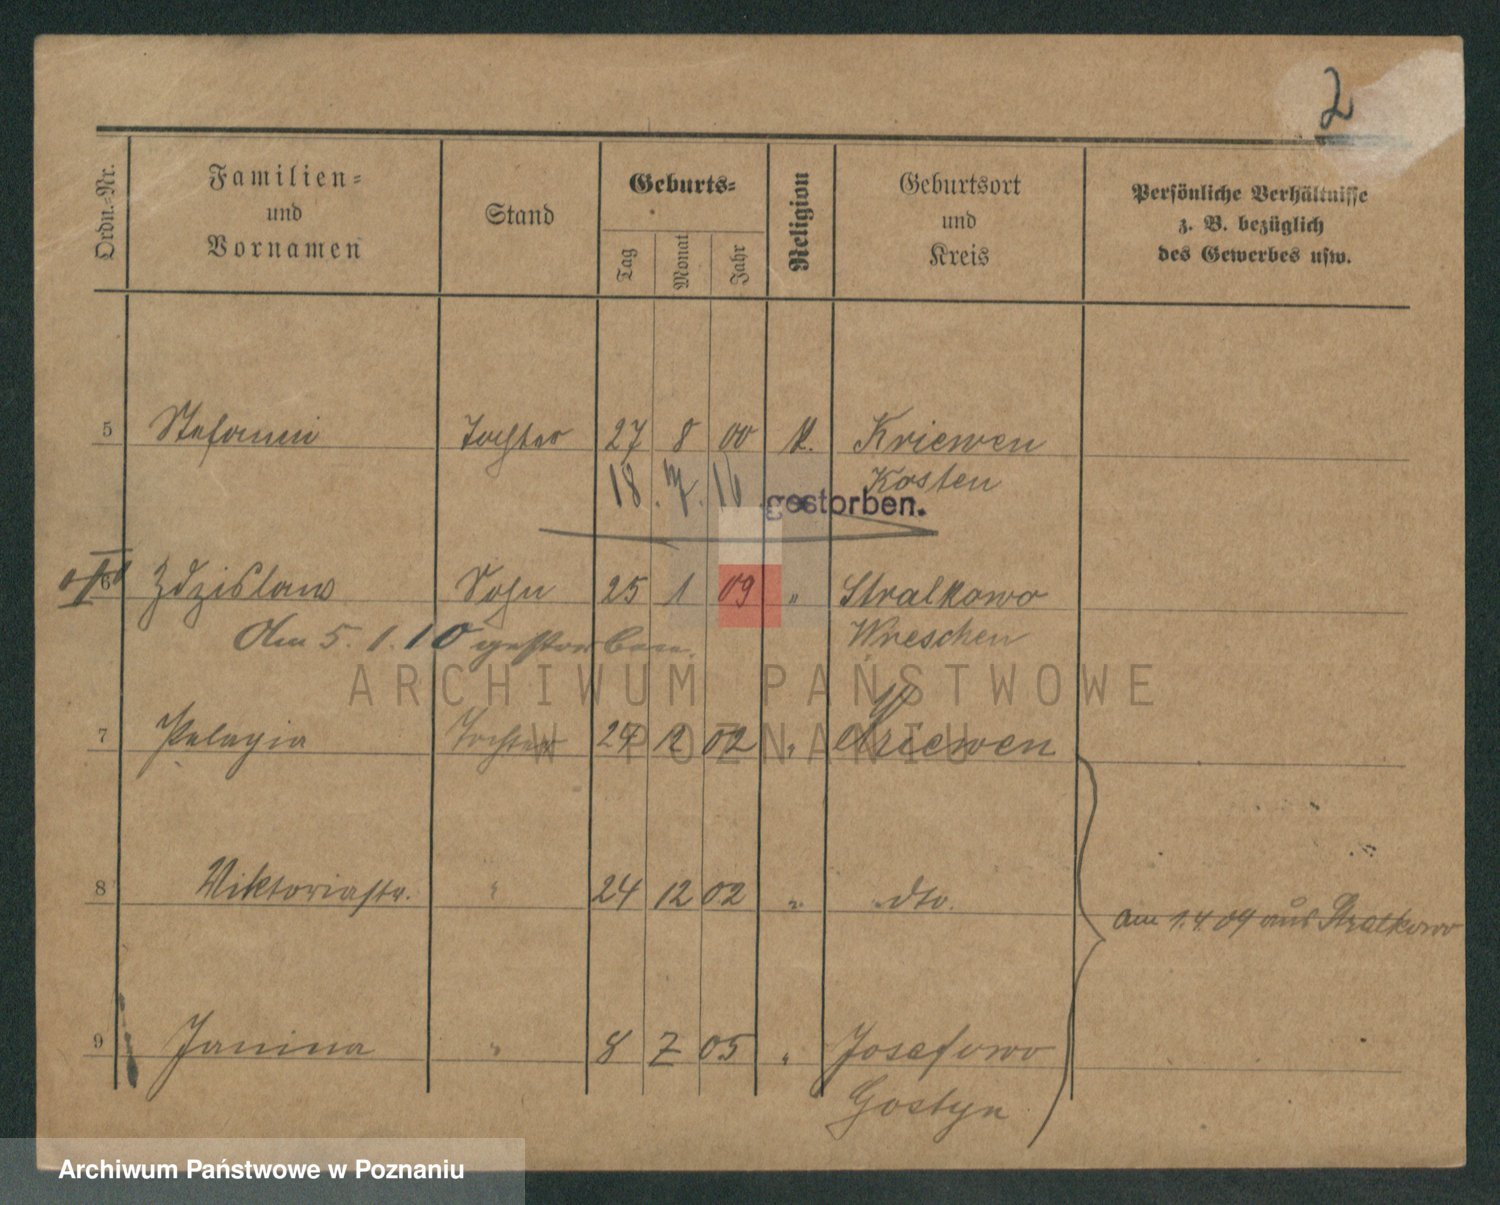 2
Ordn.-Nr.
Familien-
und
Vornamen
Stand
Geburts-
Tag
Monat
Jahr
Religion
Geburtsort
und
Kreis
Persönliche Verhältnisse
z. B. bezüglich
des Gewerbes usw.
5 Stefanie Tochter 27 8 00 k. Kriewen
Kosten
18. 7. 16 gestorben.
6 Zdzislaus Sohn 25 1 09 " Stralkowo
Am 5. 1. 10 gestorben. Wreschen
7 Pelagia Tochter 24 12 02 " Kriewen
8 Viktoria " 24 12 02 " dto.
am 1.4.09 aus Stralkowo
9 Janina " 8 7 05 " Josefowo
Gostyn
ARCHIWUM PAŃSTWOWE
W POZNANIU
Archiwum Państwowe w Poznaniu